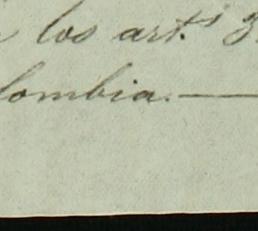 los art.s 3
lombia.—